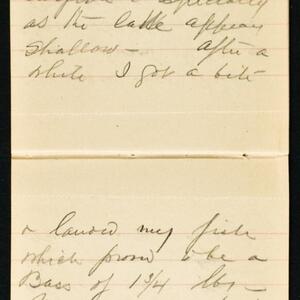 as the lake appear
shallow — after a
while I got a bite
& landed my fish
which proved to be a
Bass of 1 3/4 lbs —